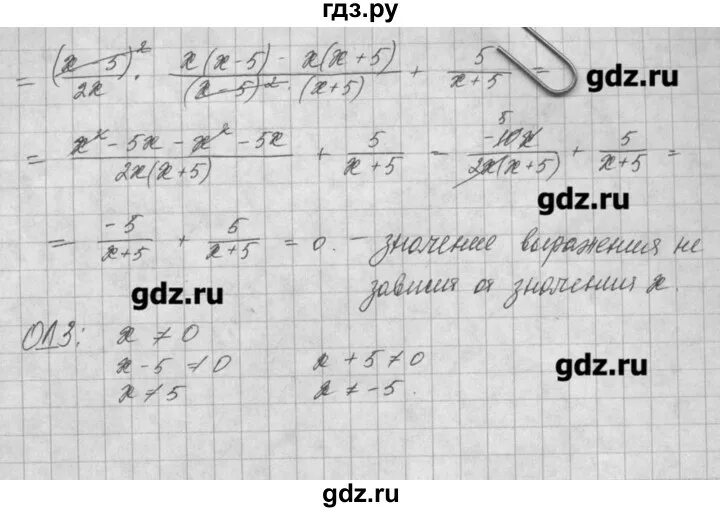 гдз.ру
= (x - 5)²/2x · (x(x-5) - x(x+5))/((x-5)²·(x+5)) + 5/(x+5) =
gdz.ru
= (x² - 5x - x² - 5x)/(2x(x+5)) + 5/(x+5) = 5 -10x/(2x(x+5)) + 5/(x+5) =
gdz.ru
= -5/(x+5) + 5/(x+5) = 0. - значение выражения не
зависит от значения x.
gdz.ru
ОДЗ: x ≠ 0
x - 5 ≠ 0 x + 5 ≠ 0
x ≠ 5 x ≠ -5.
gdz.ru
gdz.ru